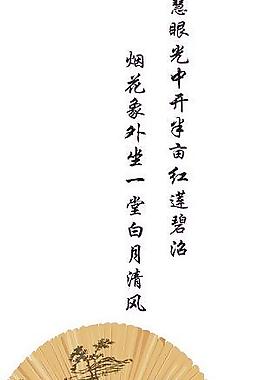 慧眼光中开半亩红莲碧沼
烟花象外坐一堂白月清风